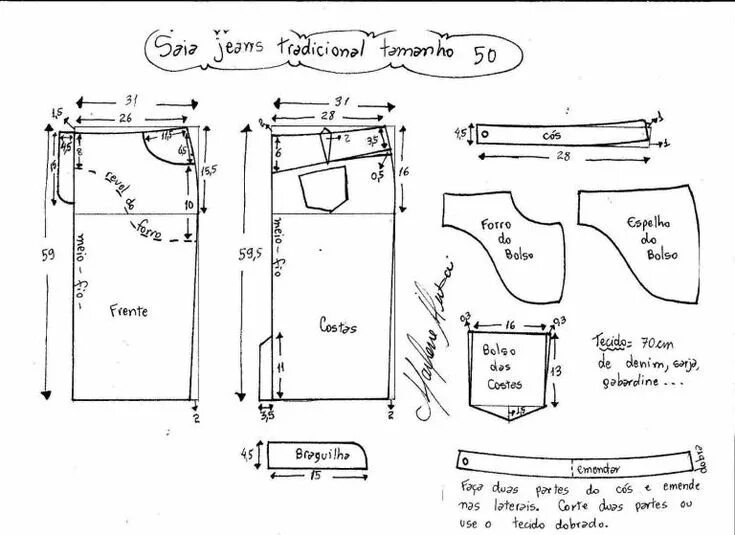 Saia jeans tradicional tamanho 50
31
26
1,5
4,5
8
11,5
6,5
15,5
10
revel do
forro
59
meio-fio-
Frente
2
31
28
2
2
3,5
6
0,5
16
59,5
meio-fio
Costas
11
3,5
2
4,5
cós
1
1
28
Forro
do
Bolso
Espelho
do
Bolso
0,3
16
0,3
Bolso
das
Costas
13
1,5
Tecido = 70cm
de denim, sarja,
gabardine...
4,5
Braguilha
15
emendar
dobra
Faça duas partes do cós e emende
nas laterais. Corte duas partes ou
use o tecido dobrado.